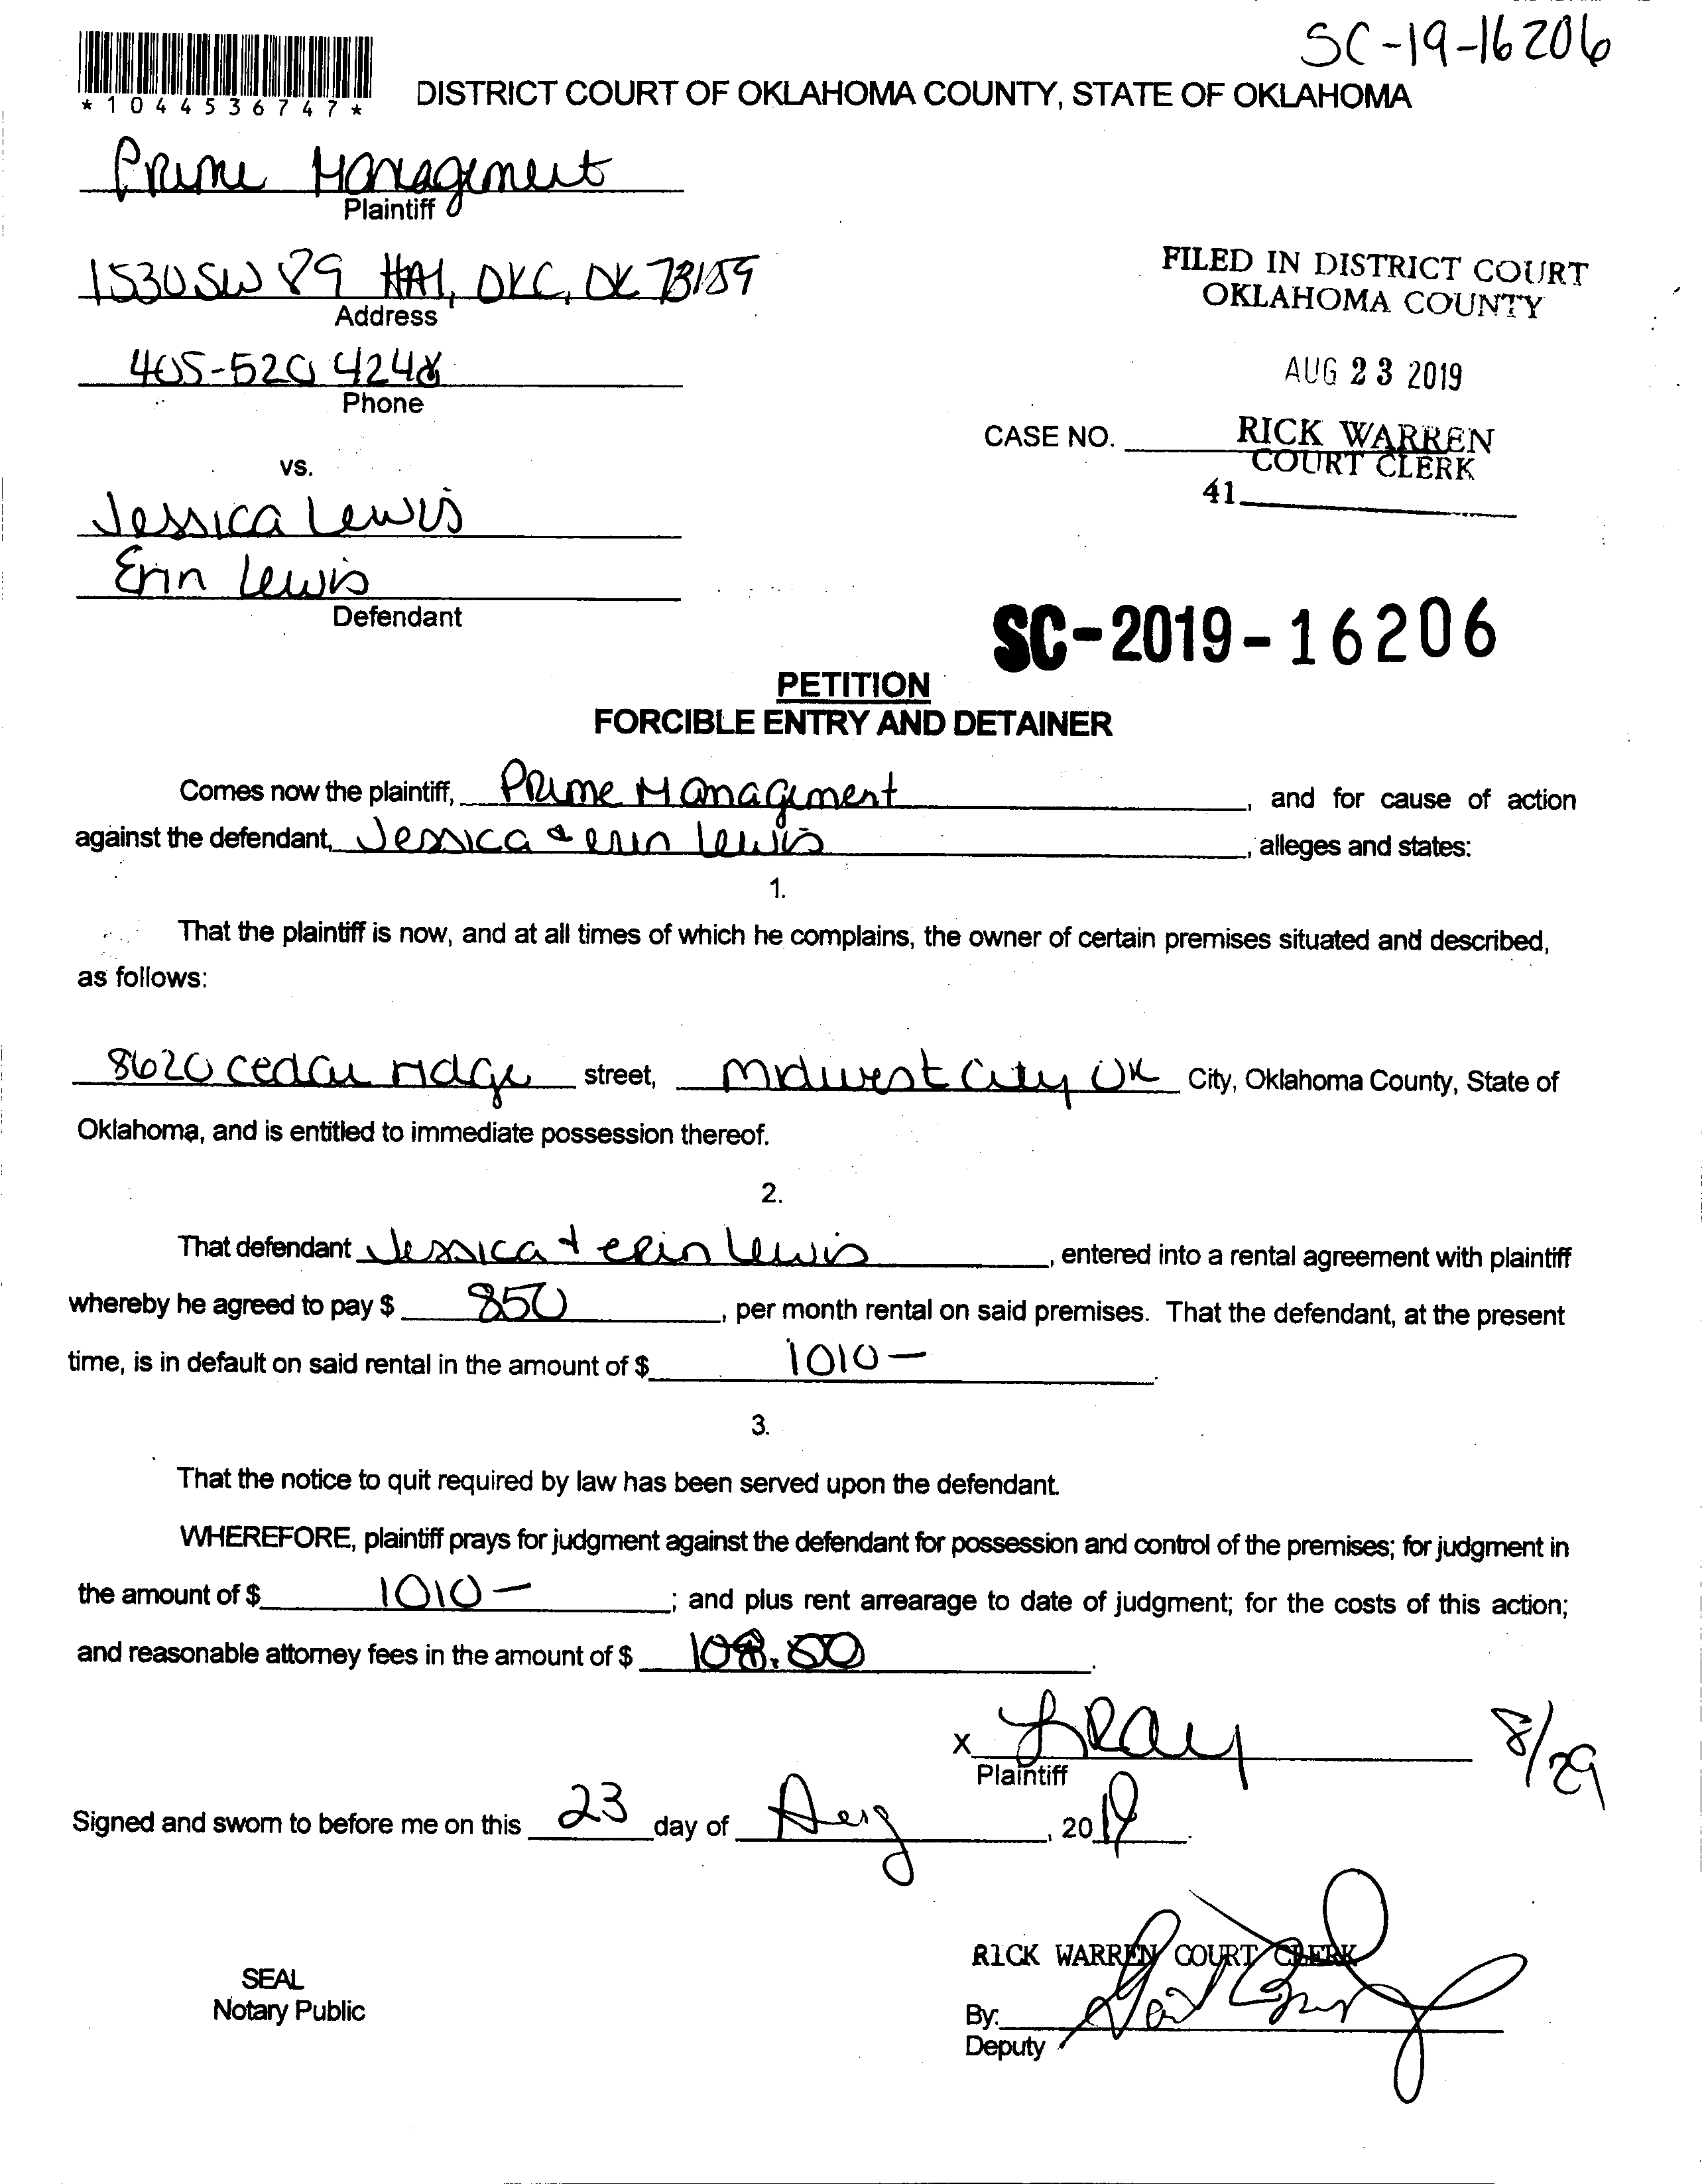 SC-19-16206
*1044536747*
DISTRICT COURT OF OKLAHOMA COUNTY, STATE OF OKLAHOMA
Prime Management
Plaintiff
1530 SW 89 #A1, OKC, OK 73159
Address
FILED IN DISTRICT COURT
OKLAHOMA COUNTY
405-520 4248
Phone
AUG 23 2019
CASE NO. RICK WARREN
COURT CLERK
vs.
41
Jessica Lewis
Erin Lewis
Defendant
SC-2019-16206
PETITION
FORCIBLE ENTRY AND DETAINER
Comes now the plaintiff, Prime Management, and for cause of action
against the defendant, Jessica & erin lewis, alleges and states:
1.
That the plaintiff is now, and at all times of which he complains, the owner of certain premises situated and described,
as follows:
8620 cedar ridge street, Midwest City OK City, Oklahoma County, State of
Oklahoma, and is entitled to immediate possession thereof.
2.
That defendant Jessica + erin Lewis, entered into a rental agreement with plaintiff
whereby he agreed to pay $ 850, per month rental on said premises. That the defendant, at the present
time, is in default on said rental in the amount of $ 1010-.
3.
That the notice to quit required by law has been served upon the defendant.
WHEREFORE, plaintiff prays for judgment against the defendant for possession and control of the premises; for judgment in
the amount of $ 1010-; and plus rent arrearage to date of judgment; for the costs of this action;
and reasonable attorney fees in the amount of $ 108.00.
X LRay 8/29
Plaintiff
Signed and sworn to before me on this 23 day of Aug, 2019.
RICK WARREN COURT CLERK
SEAL
Notary Public
By:
Deputy